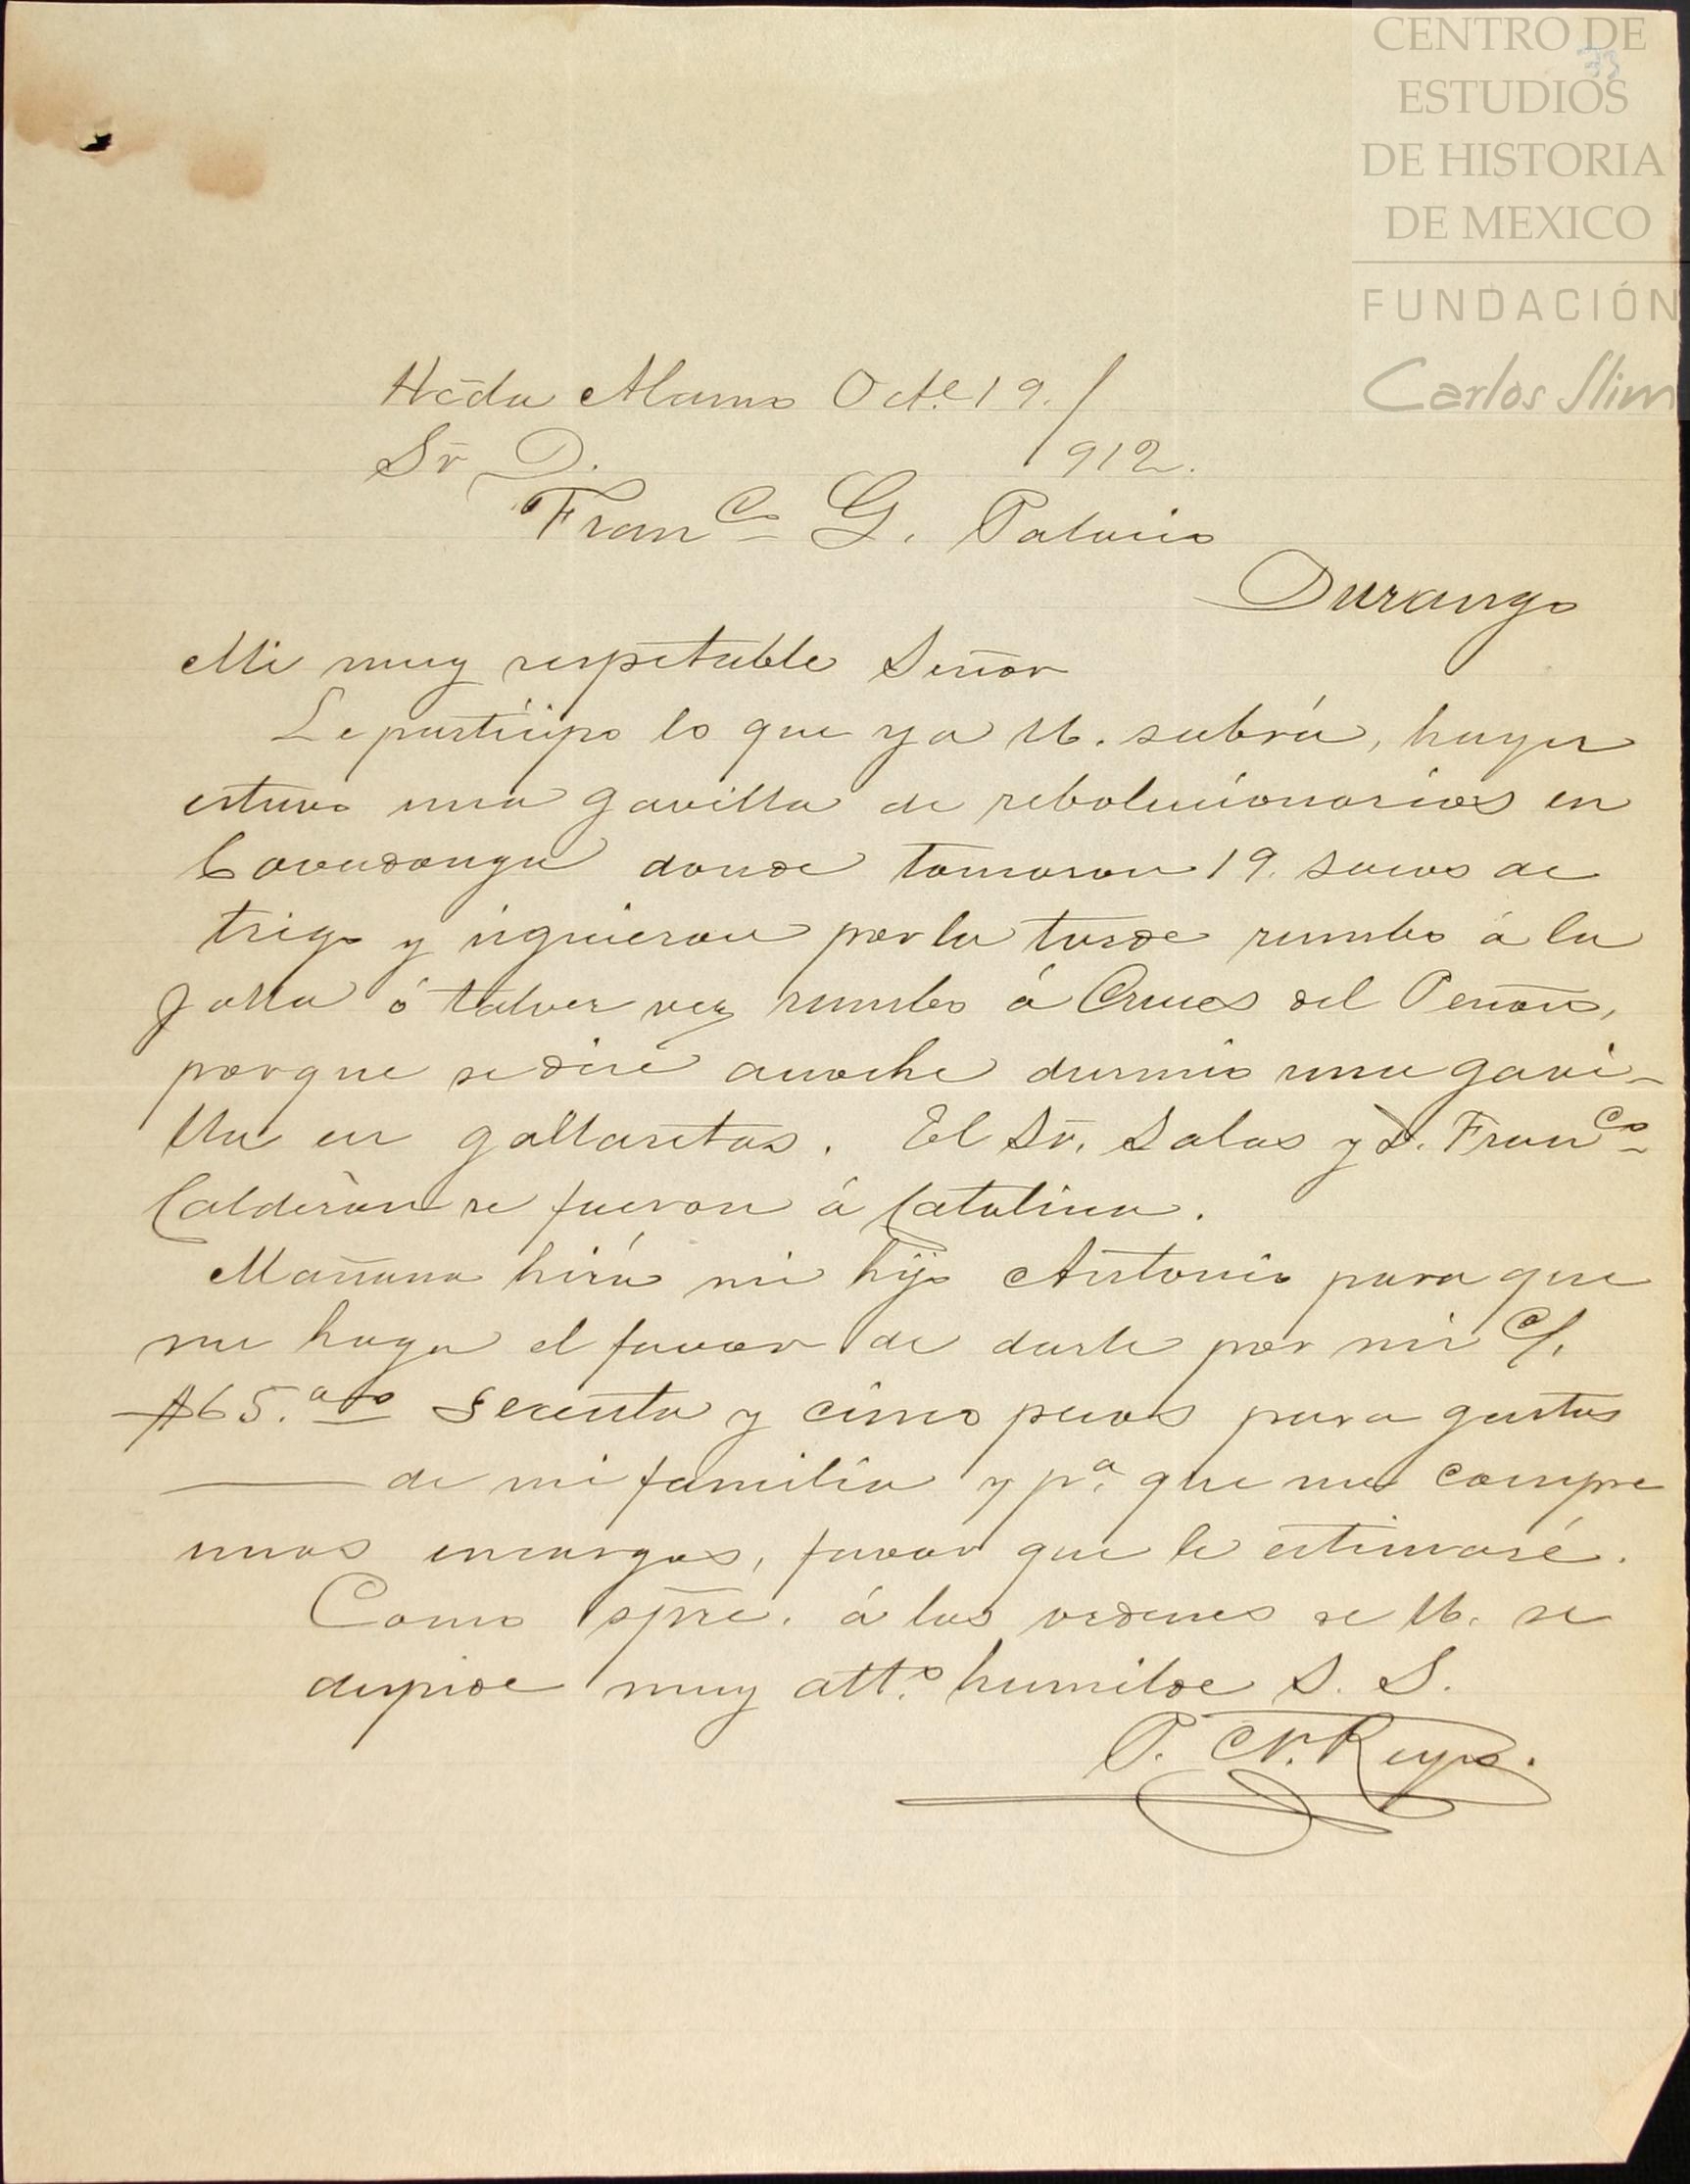 CENTRO DE
ESTUDIOS
DE HISTORIA
DE MEXICO
FUNDACIÓN
Carlos Slim
33
Hcda Alamo Oct.e 19./
Sr D. 912.
Franco G. Palacio
Durango
Mi muy respetable Señor
Le participo lo que ya U. sabrá, huyer
estuvo una gavilla de rebolucionarios en
Covadonga donde tomaron 19. sacos de
trigo y siguieron por la tarde rumbo á la
Jolla ó talves vez rumbo á Cruces del Peñon,
porque se dice anoche durmio una gavi-
lla en gallaretas. El Sr. Salas y D. Franco
Calderon se fueron á Catalina.
Mañana hirá mi hijo Antonio para que
me haga el favor de darle por mi C/.
$65.00 Secenta y cinco pesos para gastos
de mi familia y pa. que me compre
unos encargos, favor que le estimaré.
Como spre. á las ordenes de U. se
despide muy atto. humilde S. S.
P. N. Reyes.